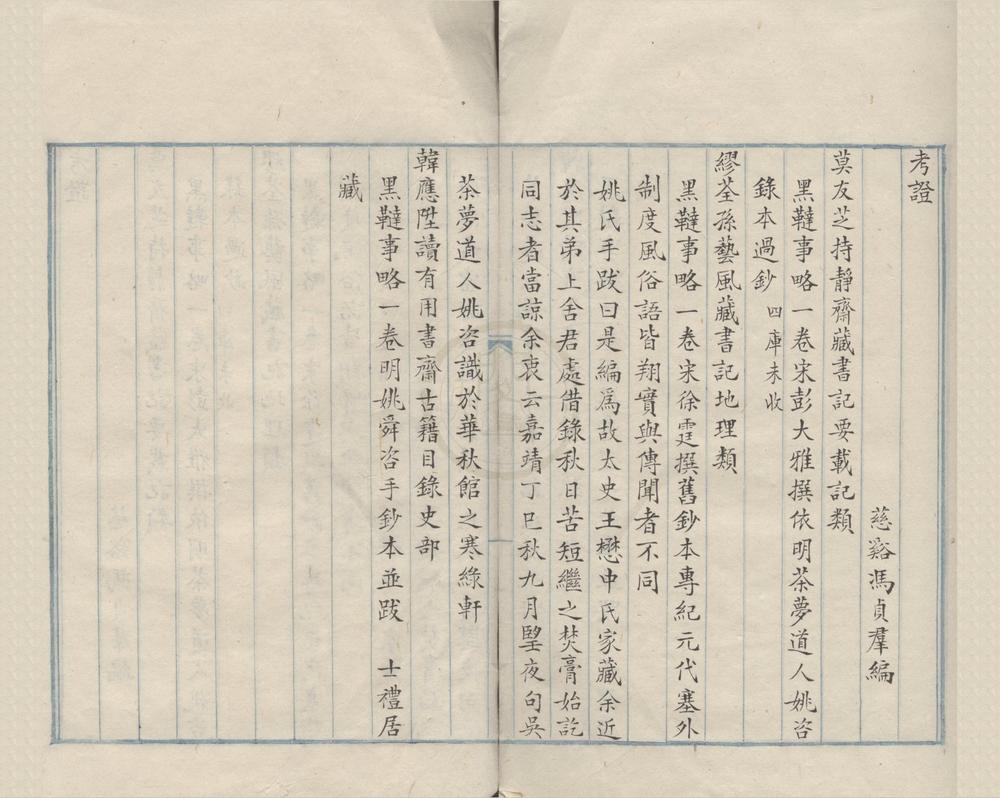 考證
慈谿馮貞羣編
莫友芝持靜齋藏書記要載記類
黑韃事略一卷宋彭大雅撰依明茶夢道人姚咨
錄本過鈔 四庫未收
繆荃孫藝風藏書記地理類
黑韃事略一卷宋徐霆撰舊鈔本專紀元代塞外
制度風俗語皆翔實與傳聞者不同
姚氏手跋曰是編爲故太史王懋中氏家藏余近
於其弟上舍君處借錄秋日苦短繼之焚膏始訖
同志者當諒余衷云嘉靖丁巳秋九月朢夜句吳
茶夢道人姚咨識於華秋館之寒綠軒
韓應陞讀有用書齋古籍目錄史部
黑韃事略一卷明姚舜咨手鈔本並跋 士禮居
藏